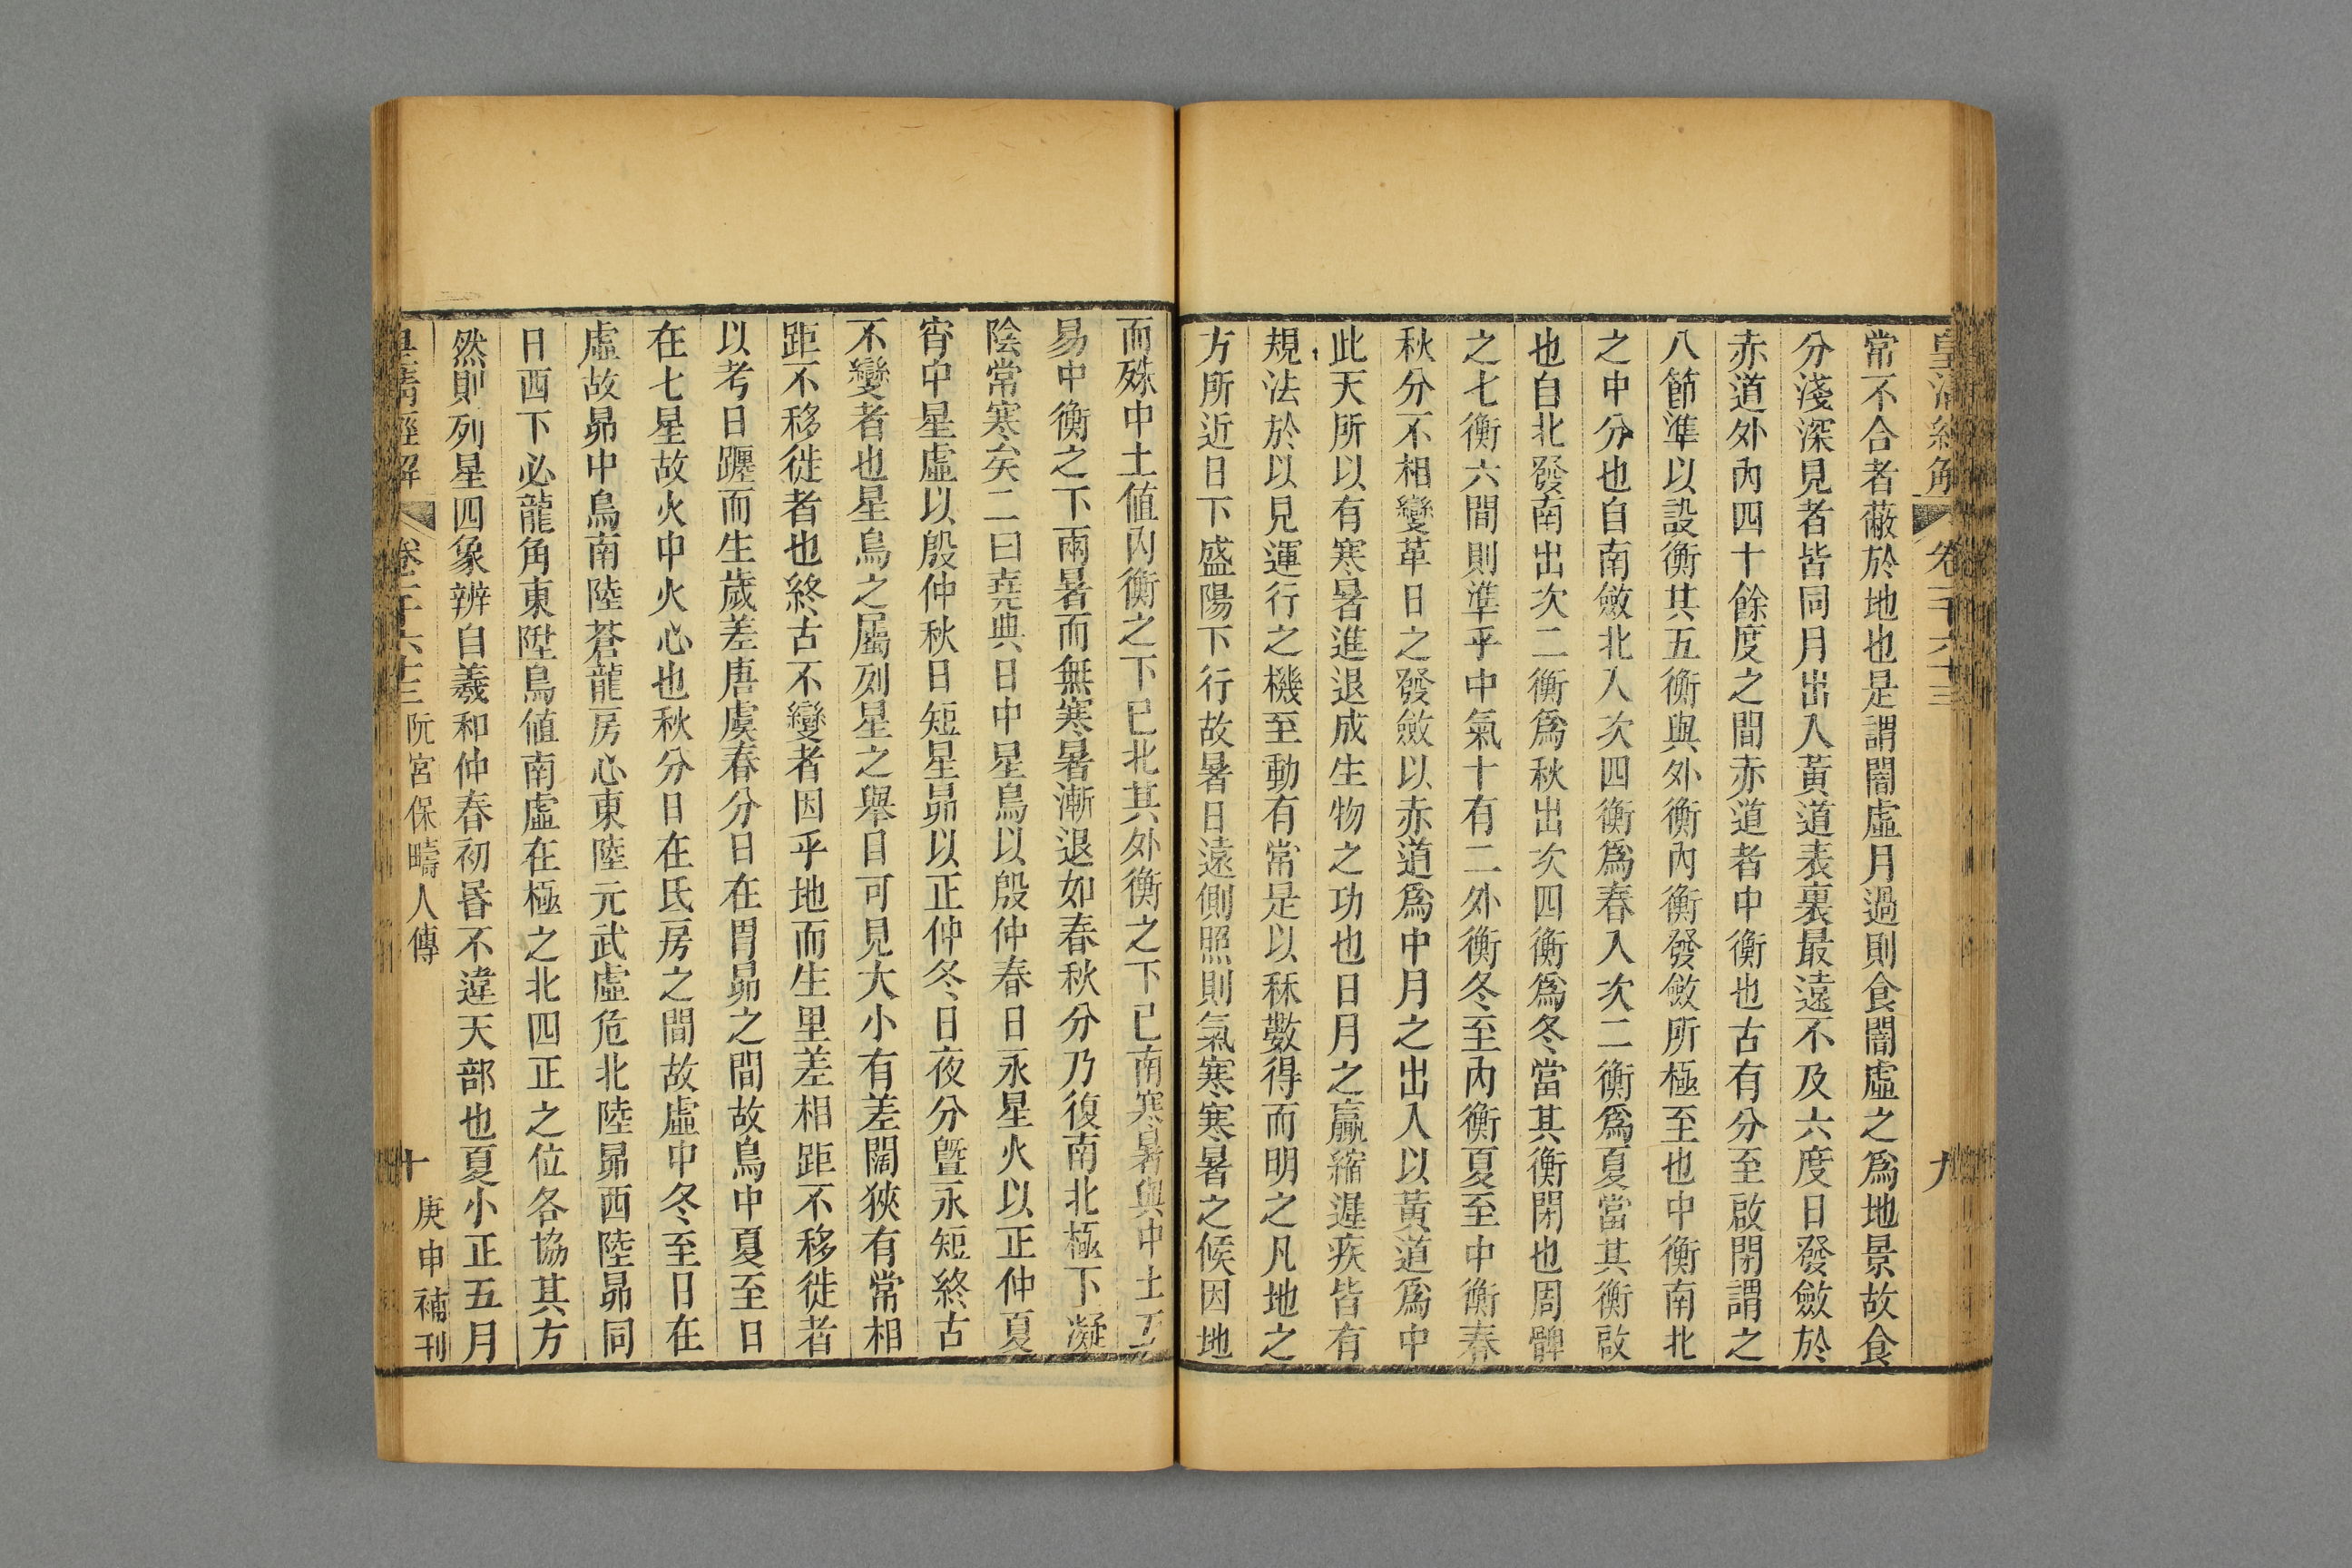 常不合者蔽於地也是謂闇虛月過則食闇虛之爲地景故食
分淺深見者皆同月出入黃道表裏最遠不及六度日發斂於
赤道外內四十餘度之間赤道者中衡也古有分至啟閉謂之
八節準以設衡其五衡與外衡內衡發斂所極至也中衡南北
之中分也自南斂北入次四衡爲春入次二衡爲夏當其衡啟
也自北發南出次二衡爲秋出次四衡爲冬當其衡閉也周髀
之七衡六間則準乎中氣十有二外衡冬至內衡夏至中衡春
秋分不相變革日之發斂以赤道爲中月之出入以黃道爲中
此天所以有寒暑進退成生物之功也日月之贏縮遲疾皆有
規法於以見運行之機至動有常是以秝數得而明之凡地之
方所近日下盛陽下行故暑日遠側照則氣寒寒暑之候因地
九
而殊中土值內衡之下已北其外衡之下已南寒暑與中土互
易中衡之下兩暑而無寒暑漸退如春秋分乃復南北極下凝
陰常寒矣二曰堯典日中星鳥以殷仲春日永星火以正仲夏
宵中星虛以殷仲秋日短星昴以正仲冬日夜分曁永短終古
不變者也星鳥之屬列星之舉目可見大小有差闊狹有常相
距不移徙者也終古不變者因乎地而生里差相距不移徙者
以考日躔而生歲差唐虞春分日在胃昴之間故鳥中夏至日
在七星故火中火心也秋分日在氐房之間故虛中冬至日在
虛故昴中鳥南陸蒼龍房心東陸元武虛危北陸昴西陸昴同
日西下必龍角東陞鳥值南虛在極之北四正之位各協其方
然則列星四象辨自羲和仲春初昏不違天部也夏小正五月
皇清經解 卷千六十三 阮宮保疇人傳 十 庚申補刊